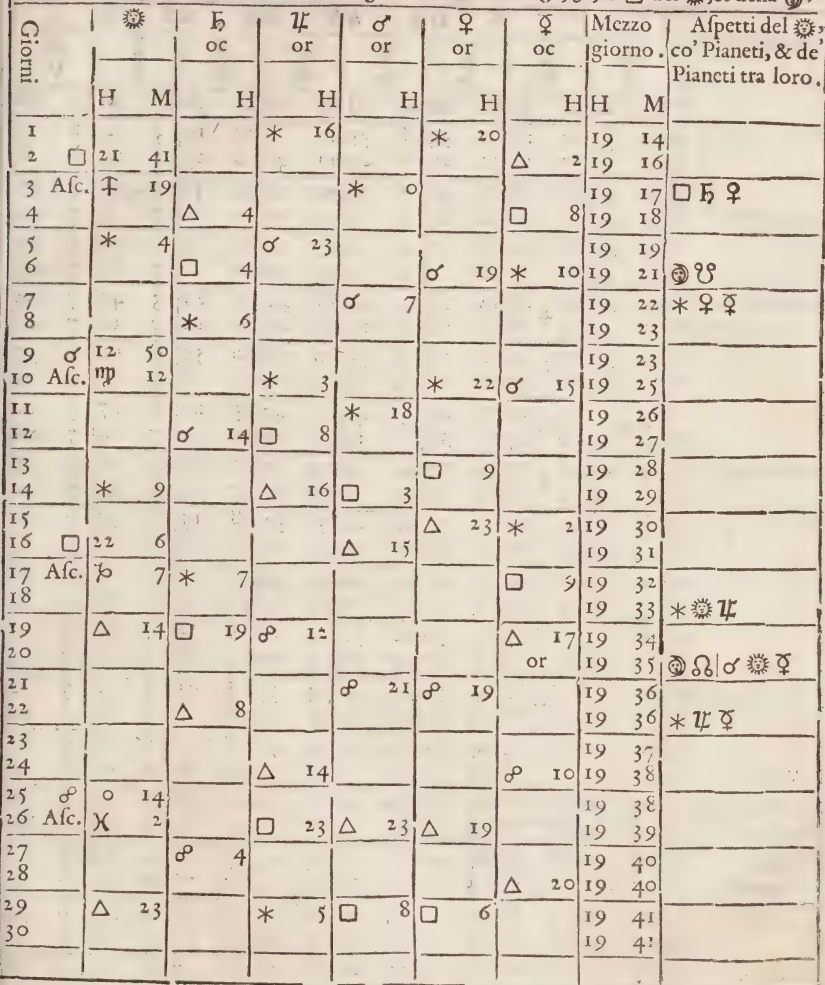 Giorni ☼ ♄ ♃ ♂ ♀ ☿ Mezzo Aſpetti del ☼,
oc or or or oc giorno. co' Pianeti, & de'
Pianeti tra loro.
H M H H H H H H M
1 ⚹ 16 ⚹ 20 19 14
2 □ 21 41 △ 2 19 16
3 Aſc. ♐ 19 ⚹ 0 19 17 □ ♄ ♀
4 △ 4 □ 8 19 18
5 ⚹ 4 ☌ 23 19 19
6 □ 4 ☌ 19 ⚹ 10 19 21 ☽ ☋
7 ☌ 7 19 22 ⚹ ♀ ☿
8 ⚹ 6 19 23
9 ☌ 12 50 19 23
10 Aſc. ♍ 12 ⚹ 3 ⚹ 22 ☌ 15 19 25
11 ⚹ 18 19 26
12 ☌ 14 □ 8 19 27
13 □ 9 19 28
14 ⚹ 9 △ 16 □ 3 19 29
15 △ 23 ⚹ 2 19 30
16 □ 22 6 △ 15 19 31
17 Aſc. ♑ 7 ⚹ 7 □ 9 19 32
18 19 33 ⚹ ☼ ♃
19 △ 14 □ 19 ☍ 12 △ 17 19 34
20 or 19 35 ☽ ☊ | ☌ ☼ ☿
21 ☍ 21 ☍ 19 19 36
22 △ 8 19 36 ⚹ ♃ ☿
23 19 37
24 △ 14 ☍ 10 19 38
25 ☍ 0 14 19 38
26 Aſc. ♓ 2 □ 23 △ 23 △ 19 19 39
27 ☍ 4 19 40
28 △ 20 19 40
29 △ 23 ⚹ 5 □ 8 □ 6 19 41
30 19